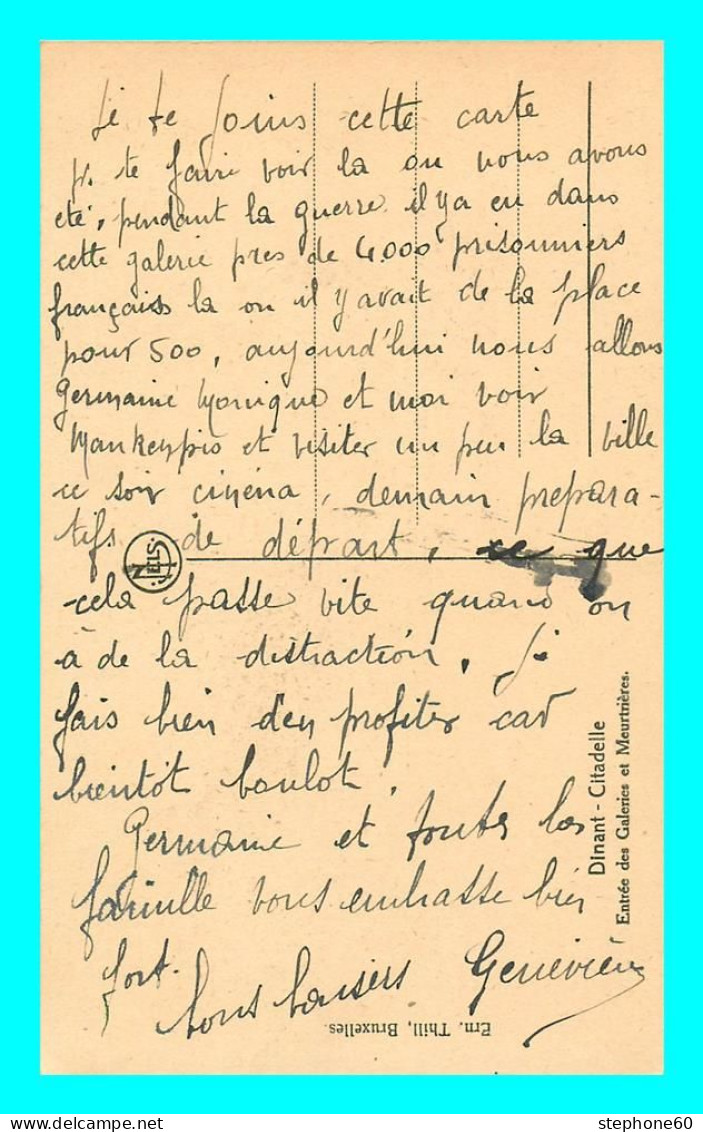 Je te joins cette carte
pr. te faire voir la ou nous avons
eté, pendant la guerre il y a eu dans
cette galerie pres de 4.000 prisonniers
français la ou il y avait de la place
pour 500, aujourd'hui nous allons
Germaine Monique et moi voir
et visiter un peu la ville
ce soir cinéma, demain prepara-
tifs de départ, ce que
cela passe vite quand on
à de la distraction. Je
fais bien d'en profiter car
bientôt boulot.
Germaine et toutes la
famille vous embrasse bien
fort.
bons baisers Geneviève
NELS
Dinant - Citadelle
Entrée des Galeries et Meurtrières.
Ern. Thill, Bruxelles.
stephone60